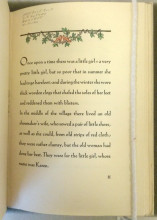 Once upon a time there was a little girl - a very
pretty little girl, but so poor that in summer she
had to go barefoot; and during the winter she wore
thick wooden clogs that chafed the soles of her feet
and reddened them with blisters.
In the middle of the village there lived an old
shoemaker's wife, who sewed a pair of little shoes,
as well as she could, from old strips of red cloth;
they were rather clumsy, but the old woman had
done her best. They were for the little girl, whose
name was Karen.